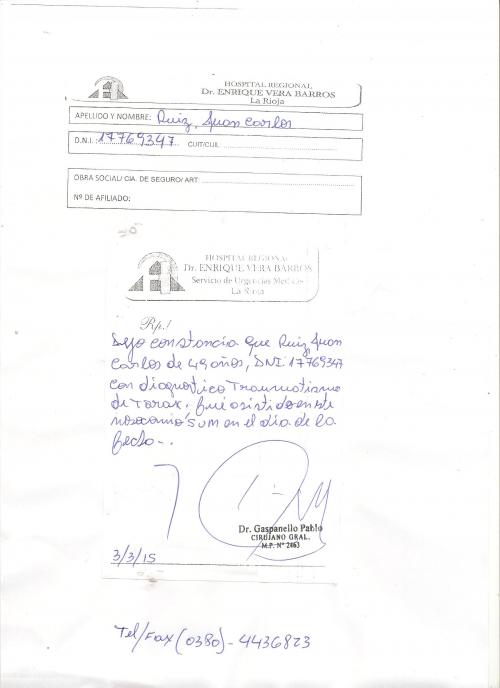 HOSPITAL REGIONAL
Dr. ENRIQUE VERA BARROS
La Rioja
APELLIDO Y NOMBRE: Ruiz, Juan Carlos
D.N.I.: 17769347 CUIT/CUIL:
OBRA SOCIAL/ CIA. DE SEGURO/ ART:
Nº DE AFILIADO:
HOSPITAL REGIONAL
Dr. ENRIQUE VERA BARROS
Servicio de Urgencias Medicas
La Rioja
Rp.!
Dejo constancia que Ruiz, Juan
Carlos de 49 años, DNI: 17769347
con diagnostico Traumatismo
de Torax, fué asistido en este
nosocomio SUM en el día de la
fecha..
Dr. Gaspanello Pablo
CIRUJANO GRAL.
M.P. Nº 2463
3/3/15
Tel/Fax (0380) - 4436823